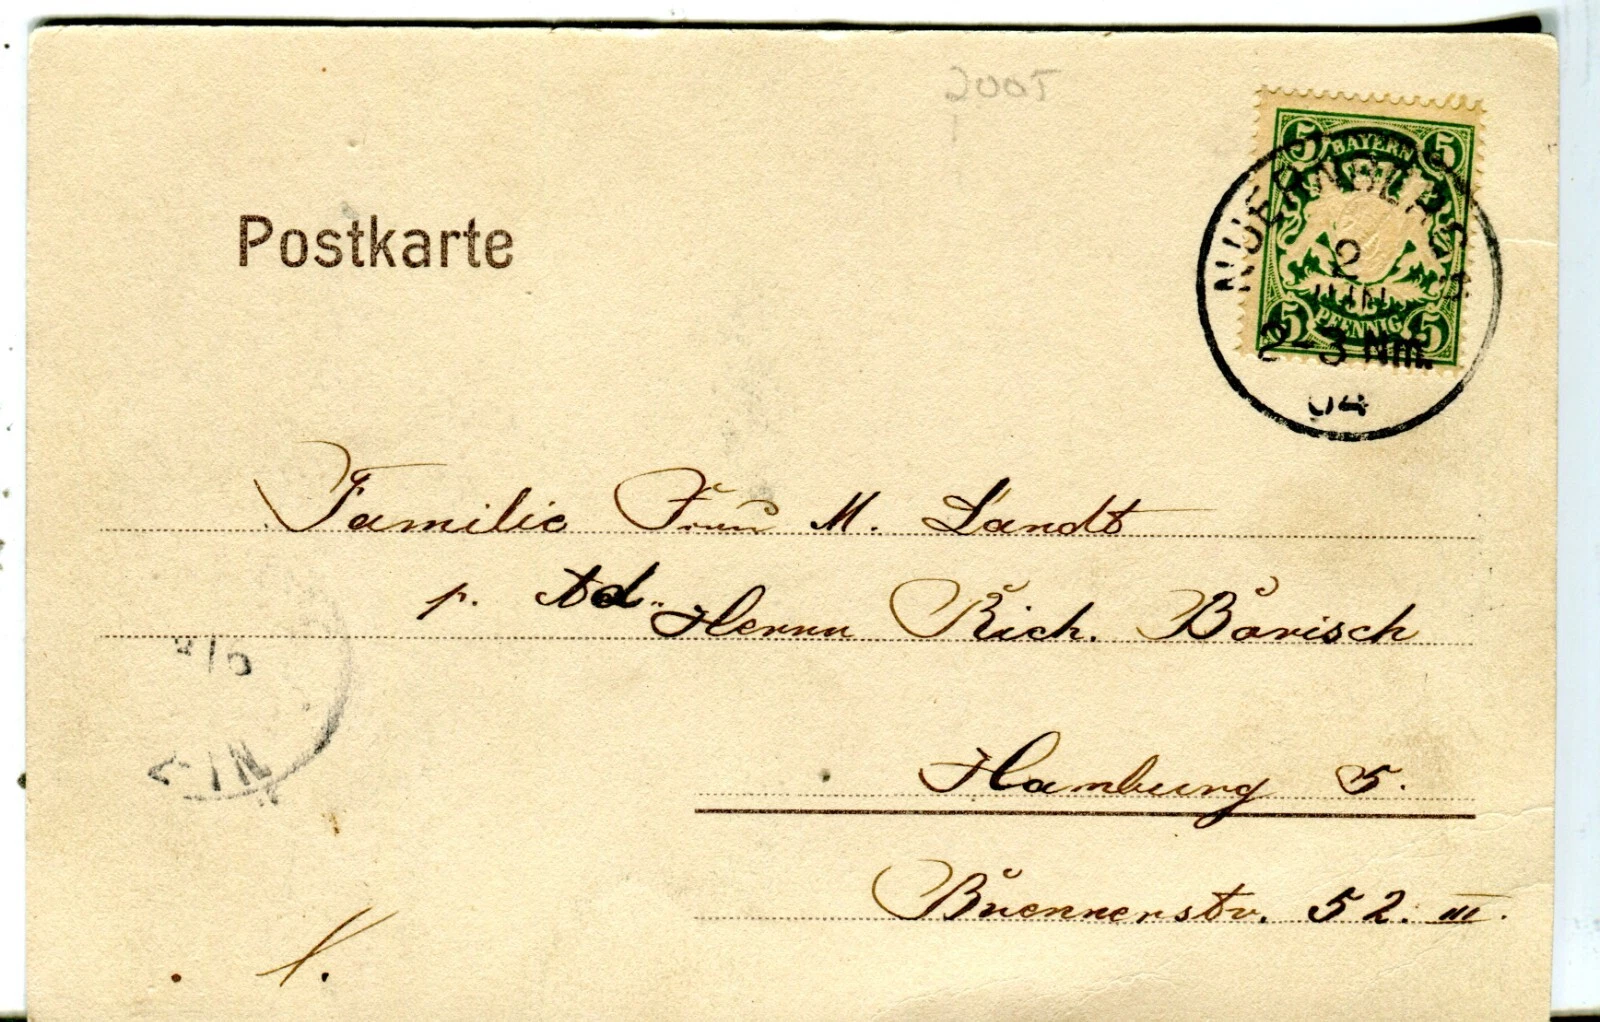 2005
5 BAYERN 5
NUERNBERG
2
JUN
PFENNIG
5 5
2-3 Nm.
04
Postkarte
Familie M. Landt
p. Ad. Herrn Rich. Börisch
Hamburg 5.
Brennerstr. 52. III.